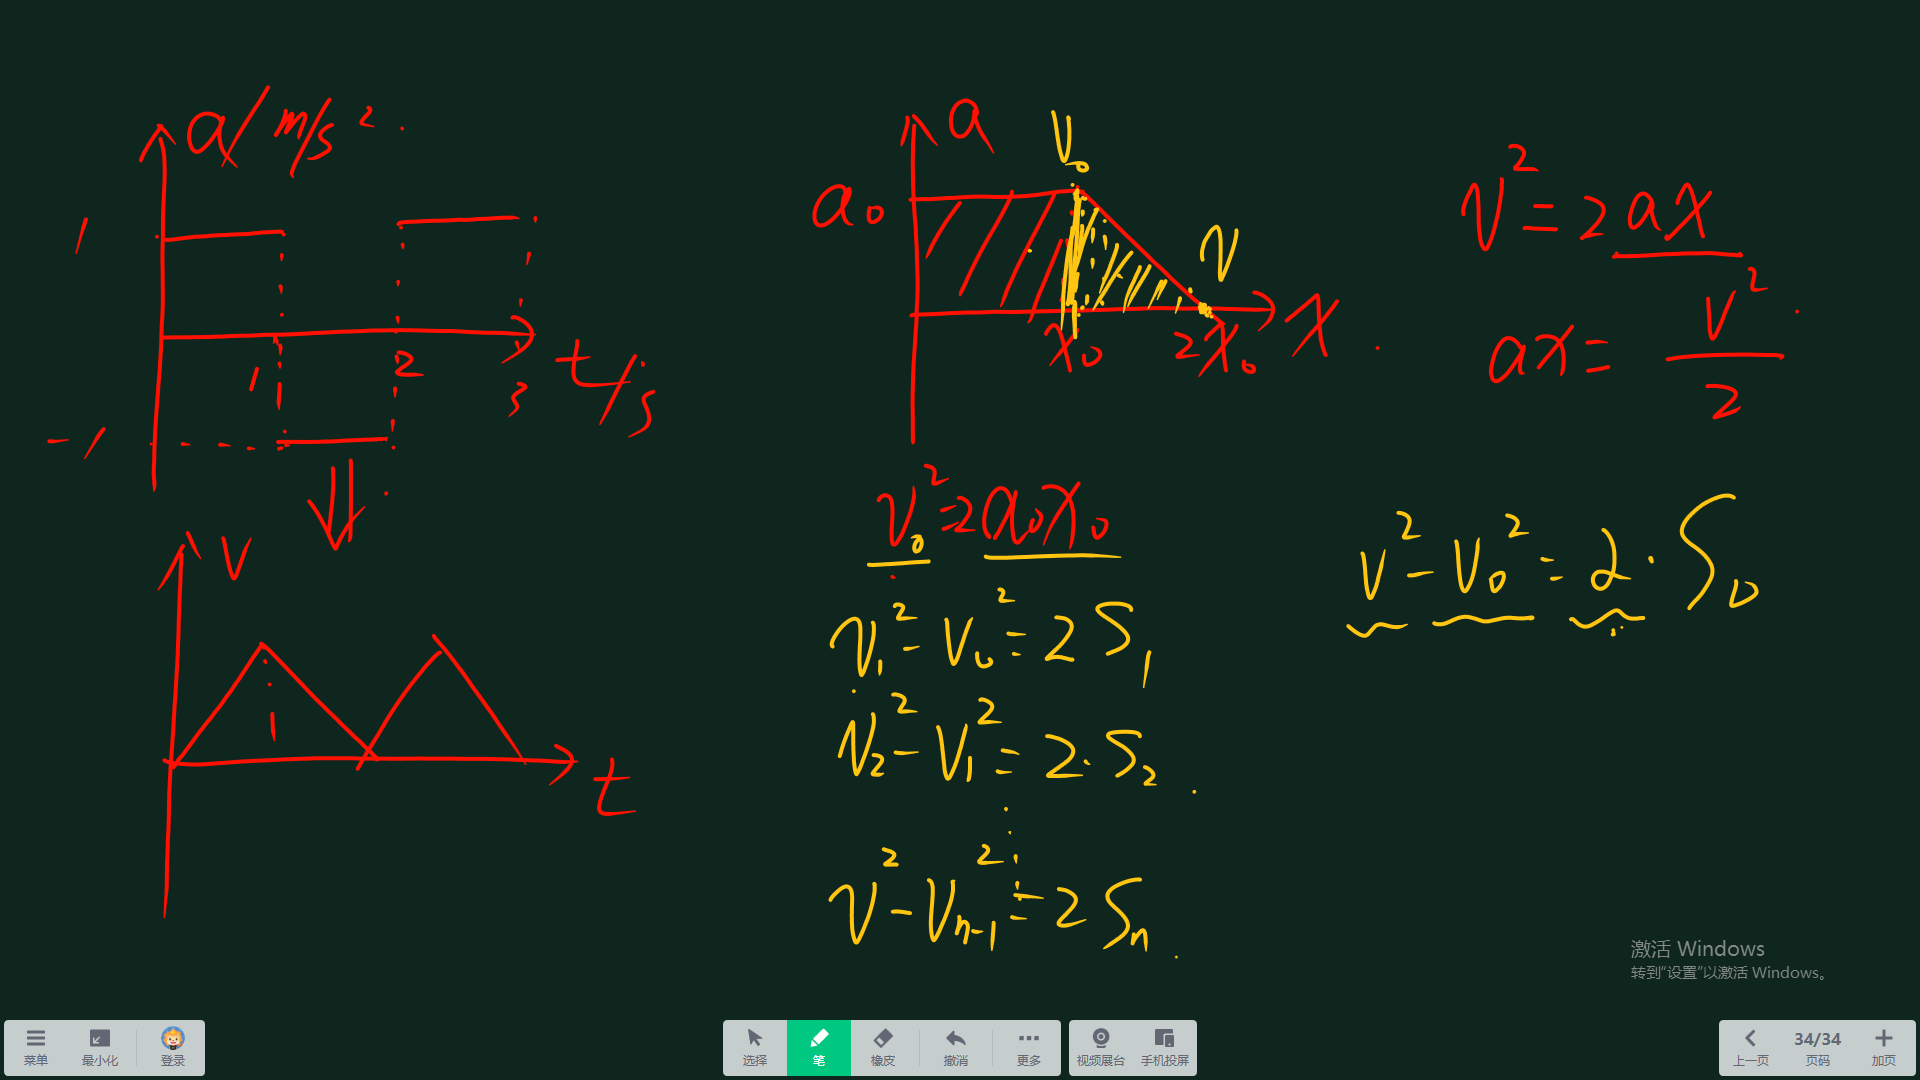 a/m/s²
1
-1
1
2
3
t/s
v
1
t
a
a₀
V₀
V
x₀
2x₀
x
V²=2ax
ax=V²/2
V₀²=2a₀x₀
V₁²-V₀²=2S₁
V₂²-V₁²=2·S₂
V²-Vₙ₋₁²=2Sₙ
V²-V₀²=2·S
激活 Windows
转到“设置”以激活 Windows。
菜单
最小化
登录
选择
笔
橡皮
撤消
更多
视频展台
手机投屏
上一页
34/34
页码
加页